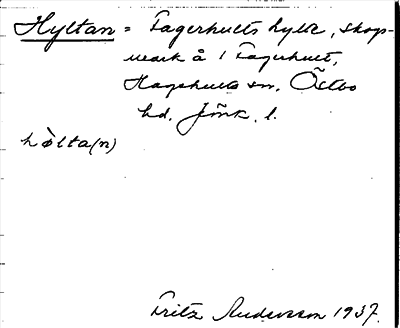 Hyltan = Fagerhults hylte, skogs-
mark å 1 Fagerhult,
Hagshults sn. Östbo
hd. Jönk. l.
hòlta(n)
Fritz Andersson 1937.